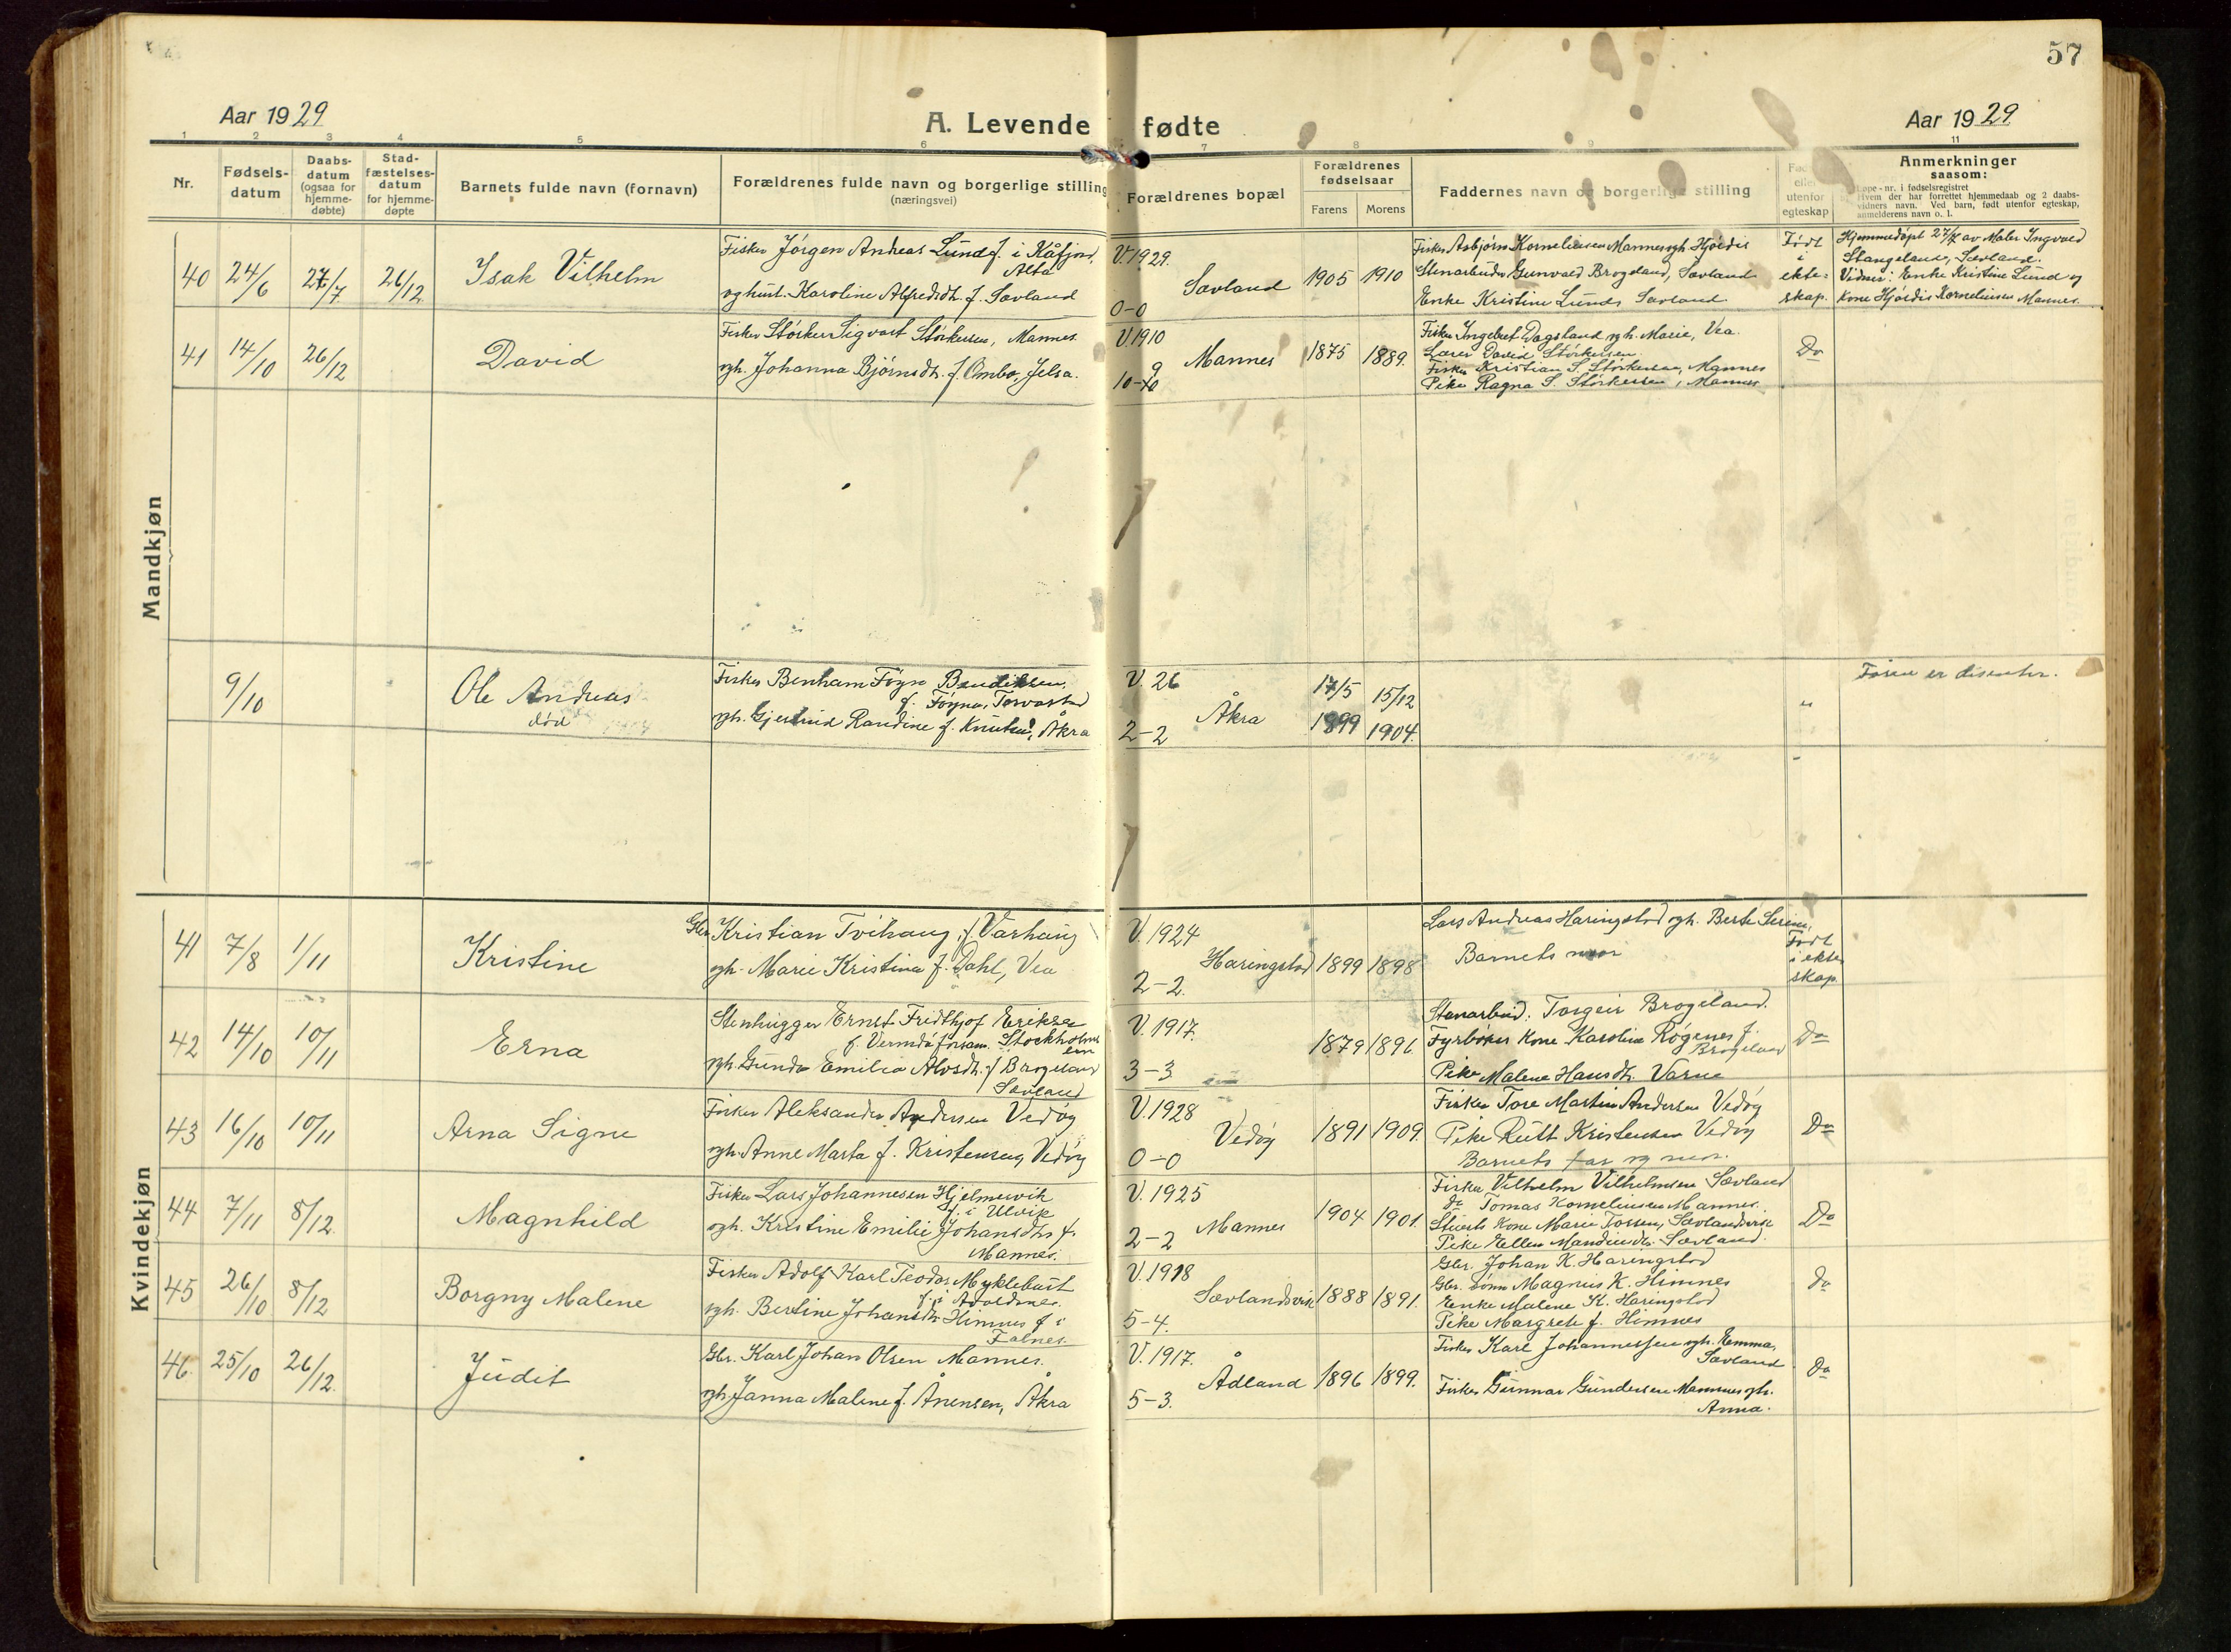 57
Aar 1929
A. Levende fødte
Aar 1929
1 2 3 4 5 6 7 8 9 11
Nr.
Fødsels-
datum
Daabs-
datum
(ogsaa for
hjemme-
døbte)
Stad-
fæstelses-
datum
for hjemme-
døpte
Barnets fulde navn (fornavn)
Forældrenes fulde navn og borgerlige stilling
(næringsvei)
Forældrenes bopæl
Forældrenes
fødselsaar
Farens Morens
Faddernes navn og borgerlige stilling
Fød
eller
utenfor
egteskap
Anmerkninger
saasom:
Løpe-nr. i fødselsregistret
Hvem der har forrettet hjemmedaab og 2 daabs-
vidners navn. Ved barn, født utenfor egteskap,
anmelderens navn o. l.
Mandkjøn
40 24/6 27/7 26/12 Isak Vilhelm
Fisker Jörgen Andreas Lund f. i Kåfjord,
Alta
og hust. Karoline Alfredsdt. f. Sævland
V. 1929.
Sævland
0-0
1905 1910
Fisker Asbjörn Korneliussen Mannes ogh. Hjördis
Stenarbeider Gunvald Brogeland, Sævland
Enke Kristine Lunds Sævland
Född
i
ekte-
skap.
Hjemmedöpt 27/7 av Maler Ingvald
Stangeland, Sævland.
Vidner: Enke Kristine Lund og
Kone Hjördis Korneliussen Mannes.
41 14/10 26/12 David
Fisker Störker Sigvart Störkersen, Mannes.
ogh. Johanna Björnsdt. f. Ombo, Jelsa.
V. 1910
Mannes
10-9
1875 1889.
Fisker Ingebret Dagsland ogh. Marie, Vea.
Lærer David Störkersen
Fisker Kristian S. Störkersen, Mannes
Pike Ragna S. Störkersen, Mannes
Do
9/10 Ole Andreas
död
Fisker Benham Föyn Bendiksen.
f. Föyno, Torvastad
ogh. Gjertrud Randine f. Knutsen, Åkra
V. 26
Åkra
2-2
17/5 15/12
1899 1904.
"
Faren er disenter.
Kvindekjøn
41 7/8 1/11 Kristine
Gbr. Kristian Tvihaug, f. Varhaug
ogh. Marie Kristina f. Dahl, Vea
V. 1924
Haringstad
2-2.
1899 1898
Lars Andreas Haringstad ogh. Berte Serine,
Barnets mor
Född
i ekte
skap.
42 14/10 10/11 Erna
Stenhugger Ernst Fridthjof Eriksen
f. Vermdö forsam. Stockholms
len
ogh. Gunda Emilia Alvsdt. f. Brogeland
Sævland
V. 1917.
3-3
1879 1896.
Stenarbeid. Torgeir Brogeland.
Fyrböter Kone Karoline Rögenes f.
Brogeland
Pike Malene Hansdt. Varne
Do
43 16/10 10/11 Arna Signe
Fisker Aleksander Andersen Vedöy
ogh. Anne Marta f. Kristensen, Vedöy
V. 1928
Vedöy
0-0
1891 1909.
Fisker Tore Martin Andersen Vedöy
Pike Rutt Kristensen Vedöy
Barnets far og mor.
Do
44 7/11 8/12. Magnhild
Fisker Lars Johannesen Hjelmevik
f. i Ulvik
ogh. Kristine Emilie Johansdtr. f.
Mannes.
V. 1925
Mannes
2-2
1904 1901.
Fisker Vilhelm Vilhelmsen Sævland
do Tomas Korneliussen Mannes.
Stuerts Kone Marie Torsen, Sævlandsvik
Pike Ellen Mandiusdt. Sævland.
Do
45 26/10 8/12 Borgny Malene
Fisker Adolf Karl Teodor Myklebust
f. i Avaldsnes.
ogh. Bertine Johansdt. Himnes f. i
Falnes.
V. 1918
Sævlandsvik
5-4.
1888 1891.
Gbr. Johan K. Haringstad
Gbr. sönn Magnus K. Himnes
Enke Malene K. Haringstad
Pike Margrete f. Himnes
do
46. 25/10 26/12. Judit
Gbr. Karl Johan Olsen Mannes.
ogh. Janna Malene f. Ånensen, Åkra
V. 1917.
Ådland
5-3.
1896 1899.
Fisker Karl Johannessen ogh. Emma,
Sævland
Fisker Gunnar Gundersen Mannes ogh.
Anna.
Do